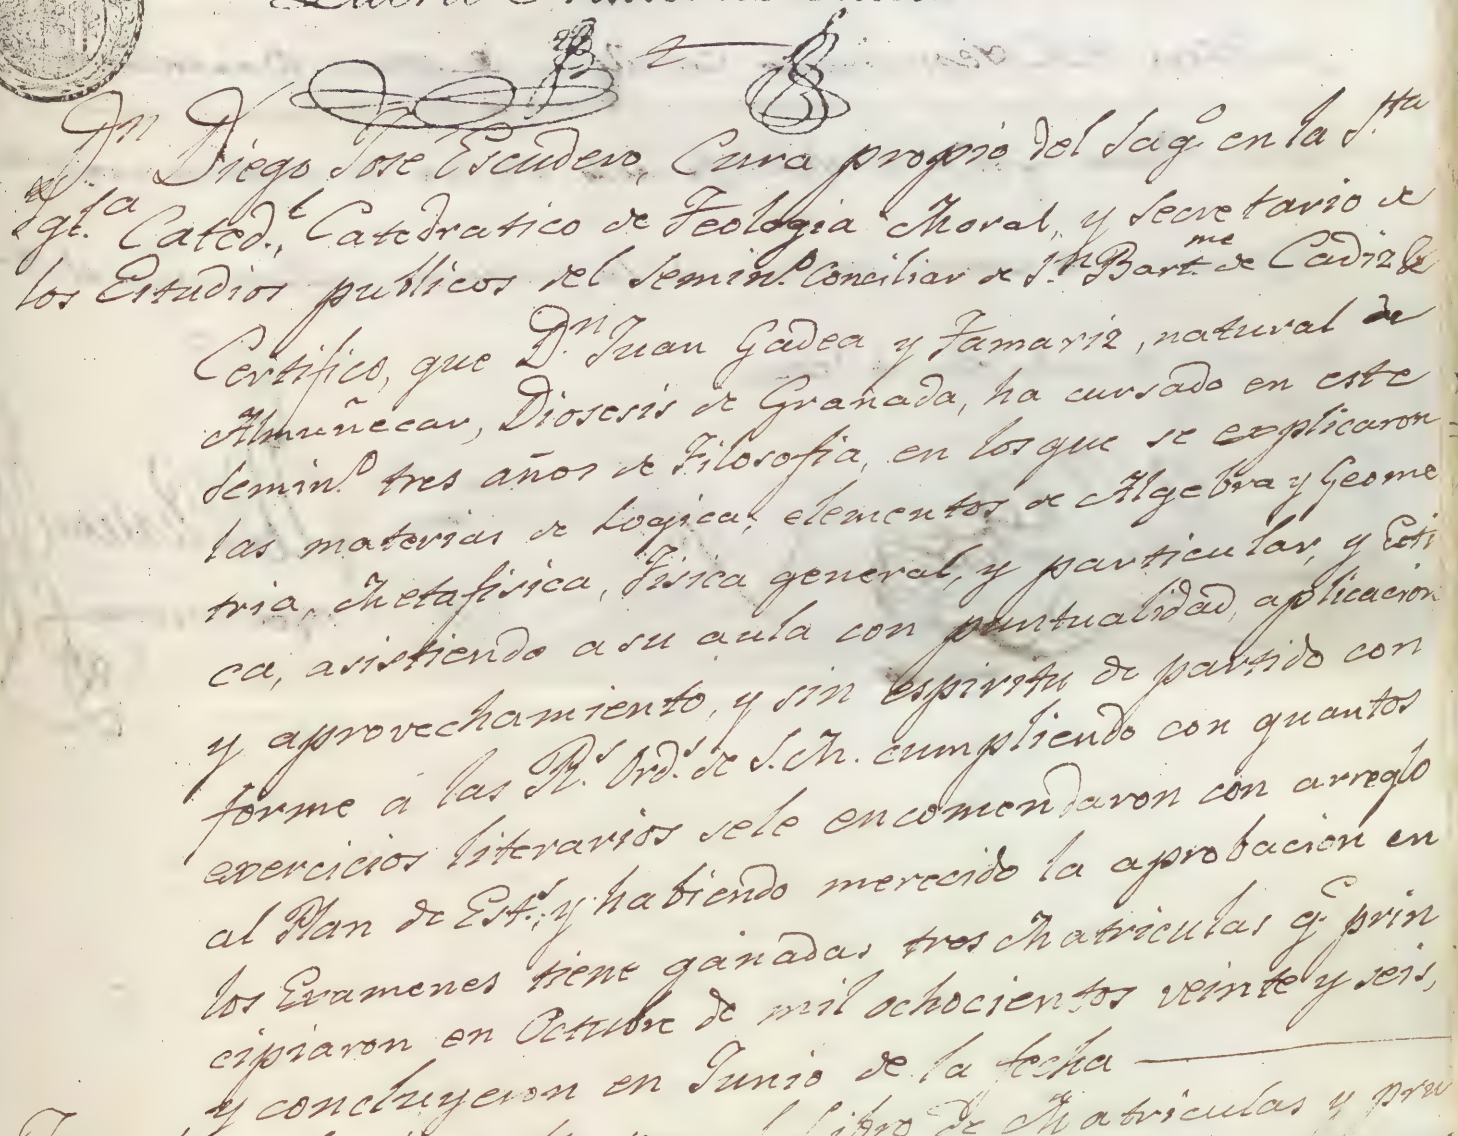 Dn. Diego Jose Escudero, Cura propio del Sago. en la Sta.
Igla. Catedl., Catedratico de Teologia Moral, y Secretario de
los Estudios publicos del Semino. Conciliar de Sn. Bartme. de Cadiz &
Certifico, que Dn. Juan Gadea y Tamariz, natural de
Almuñecar, Diosesis de Granada, ha cursado en este
Semino. tres años de Filosofia, en los que se explicaron
las materias de Logica, elementos de Algebra y Geome
tria, Metafisica, Fisica general, y particular, y Eti
ca, asistiendo a su aula con puntualidad, aplicacion
y aprovechamiento, y sin espiritu de partido con
forme á las Rs. Ords. de S.M. cumpliendo con quantos
exercicios literarios sele encomendaron con arreglo
al Plan de Ests., y habiendo merecido la aprobacion en
los Examenes tiene ganadas tres Matriculas qe. prin
cipiaron en Octubre de mil ochocientos veinte y seis,
y concluyeron en Junio de la fecha
Libro de Matriculas y pru